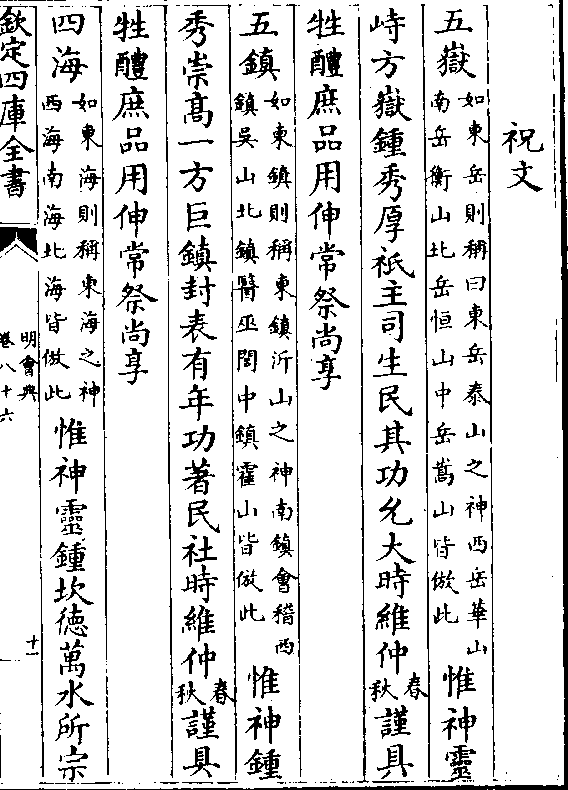 祝文
五嶽如東岳則稱曰東岳泰山之神西岳華山南岳衡山北岳恒山中岳嵩山皆倣此惟神靈
峙方嶽鍾秀厚祇主司生民其功允大時維仲春秋謹具
牲醴庶品用伸常祭尚享
五鎮如東鎮則稱東鎮沂山之神南鎮會稽西鎮吳山北鎮醫巫閭中鎮霍山皆倣此惟神鍾
秀崇高一方巨鎮封表有年功著民社時維仲春秋謹具
牲醴庶品用伸常祭尚享
四海如東海則稱東海之神西海南海北海皆倣此惟神靈鍾坎徳萬水所宗
欽定四庫全書
明會典
卷八十六
十一